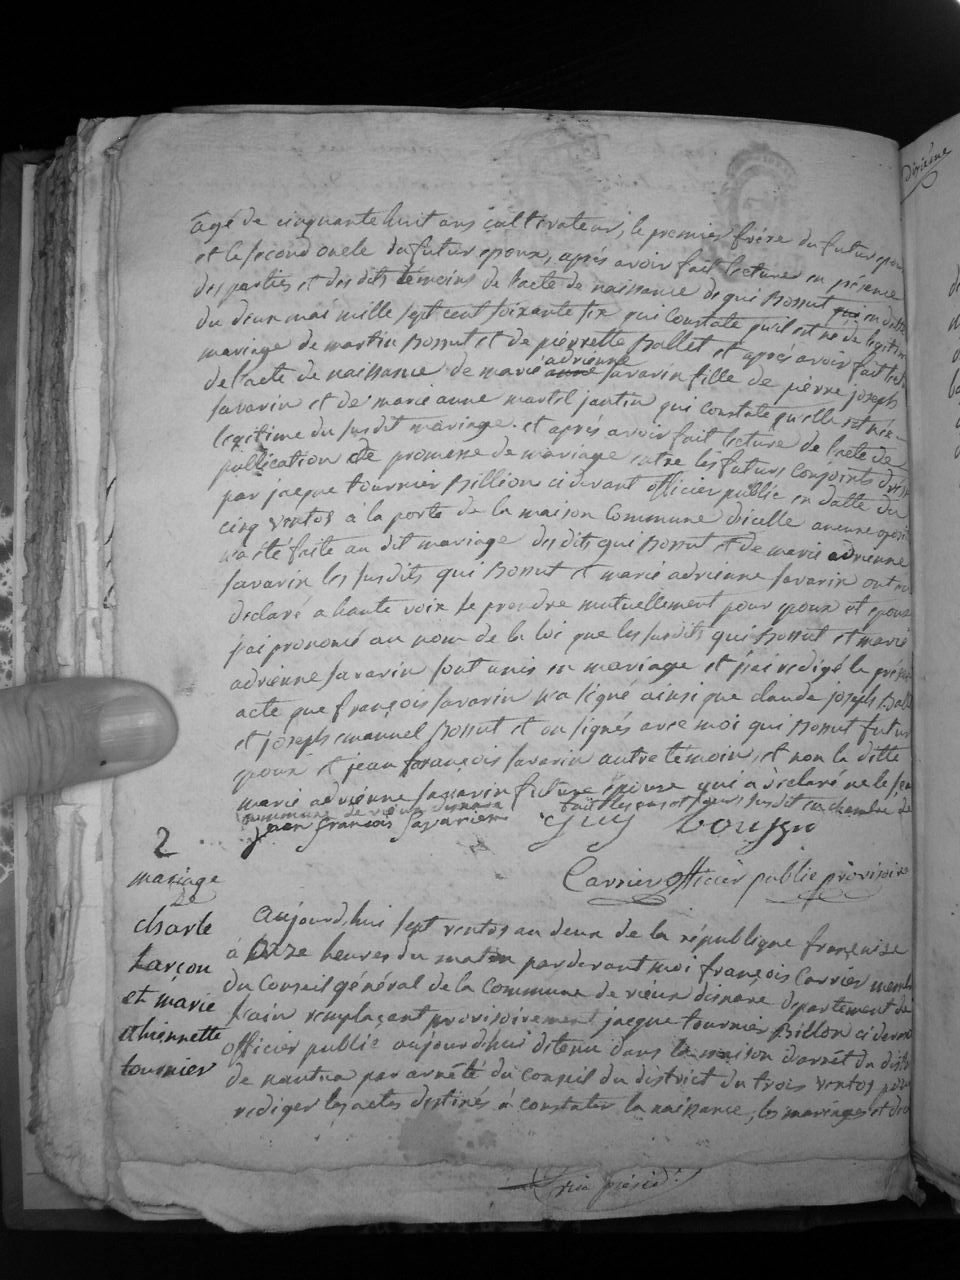 Dixième
âgé de cinquante huit ans cultivateur, le premier frère du futur epoux
et le second oncle du futur epoux, après avoir fait lecture en presence
des parties et des dits témoins de l'acte de naissance de gui Bossut qui en datte
du deux mai mille sept cent soixante six qui constate qu'il est né de legitime
mariage de martin Bossut et de pierrette Ballet et après avoir fait lecture
de l'acte de naissance de marie anne adrienne savarin fille de pierre joseph
savarin et de marie anne martel jantin qui constate qu'elle est née
legitime du susdit mariage. et après avoir fait lecture de l'acte de
publication de promesse de mariage entre les futurs conjoints dressé
par jacque tournier Billion ci devant officier public en datte du
cinq ventos à la porte de la maison Commune d'icelle aucune oposition
n'a été faite au dit mariage des dits gui Bossut et de marie adrienne
savarin les susdits gui Bossut et marie adrienne savarin ont
declaré a haute voix se prendre mutuellement pour epoux et epouse
j'ai prononcé au nom de la loi que les susdits gui Bossut et marie
adrienne savarin sont unis en mariage et j'ai redigé le présent
acte que françois savarin n'a signé ainsi que claude joseph Ballet
et joseph emanuel Bossut et on signés avec moi gui Bossut futur
epoux et jean françois savarin autre témoin, et non la ditte
marie adrienne savarin future epouse qui a déclaré ne le
fait les jour susdit en chambre de
commune de vieux disnave
jean françois Savarien Guy Boussu
Carrier officier public provisoire
2
mariage
de
charle
tarçon
et marie
thiennette
tournier
aujourd'hui sept ventos an deux de la république françoise
à onze heures du matin par devant moi françois Carrier membre
du Conseil général de la Commune de vieux disnave departement de
l'ain remplaçant provisoirement jacque tournier Billon ci devant
officier public aujourd'hui détenu dans la maison d'arrêt du district
de nantua par arrêté du conseil du district du trois ventos pour
rediger les actes destinés à constater la naissance, les mariages et